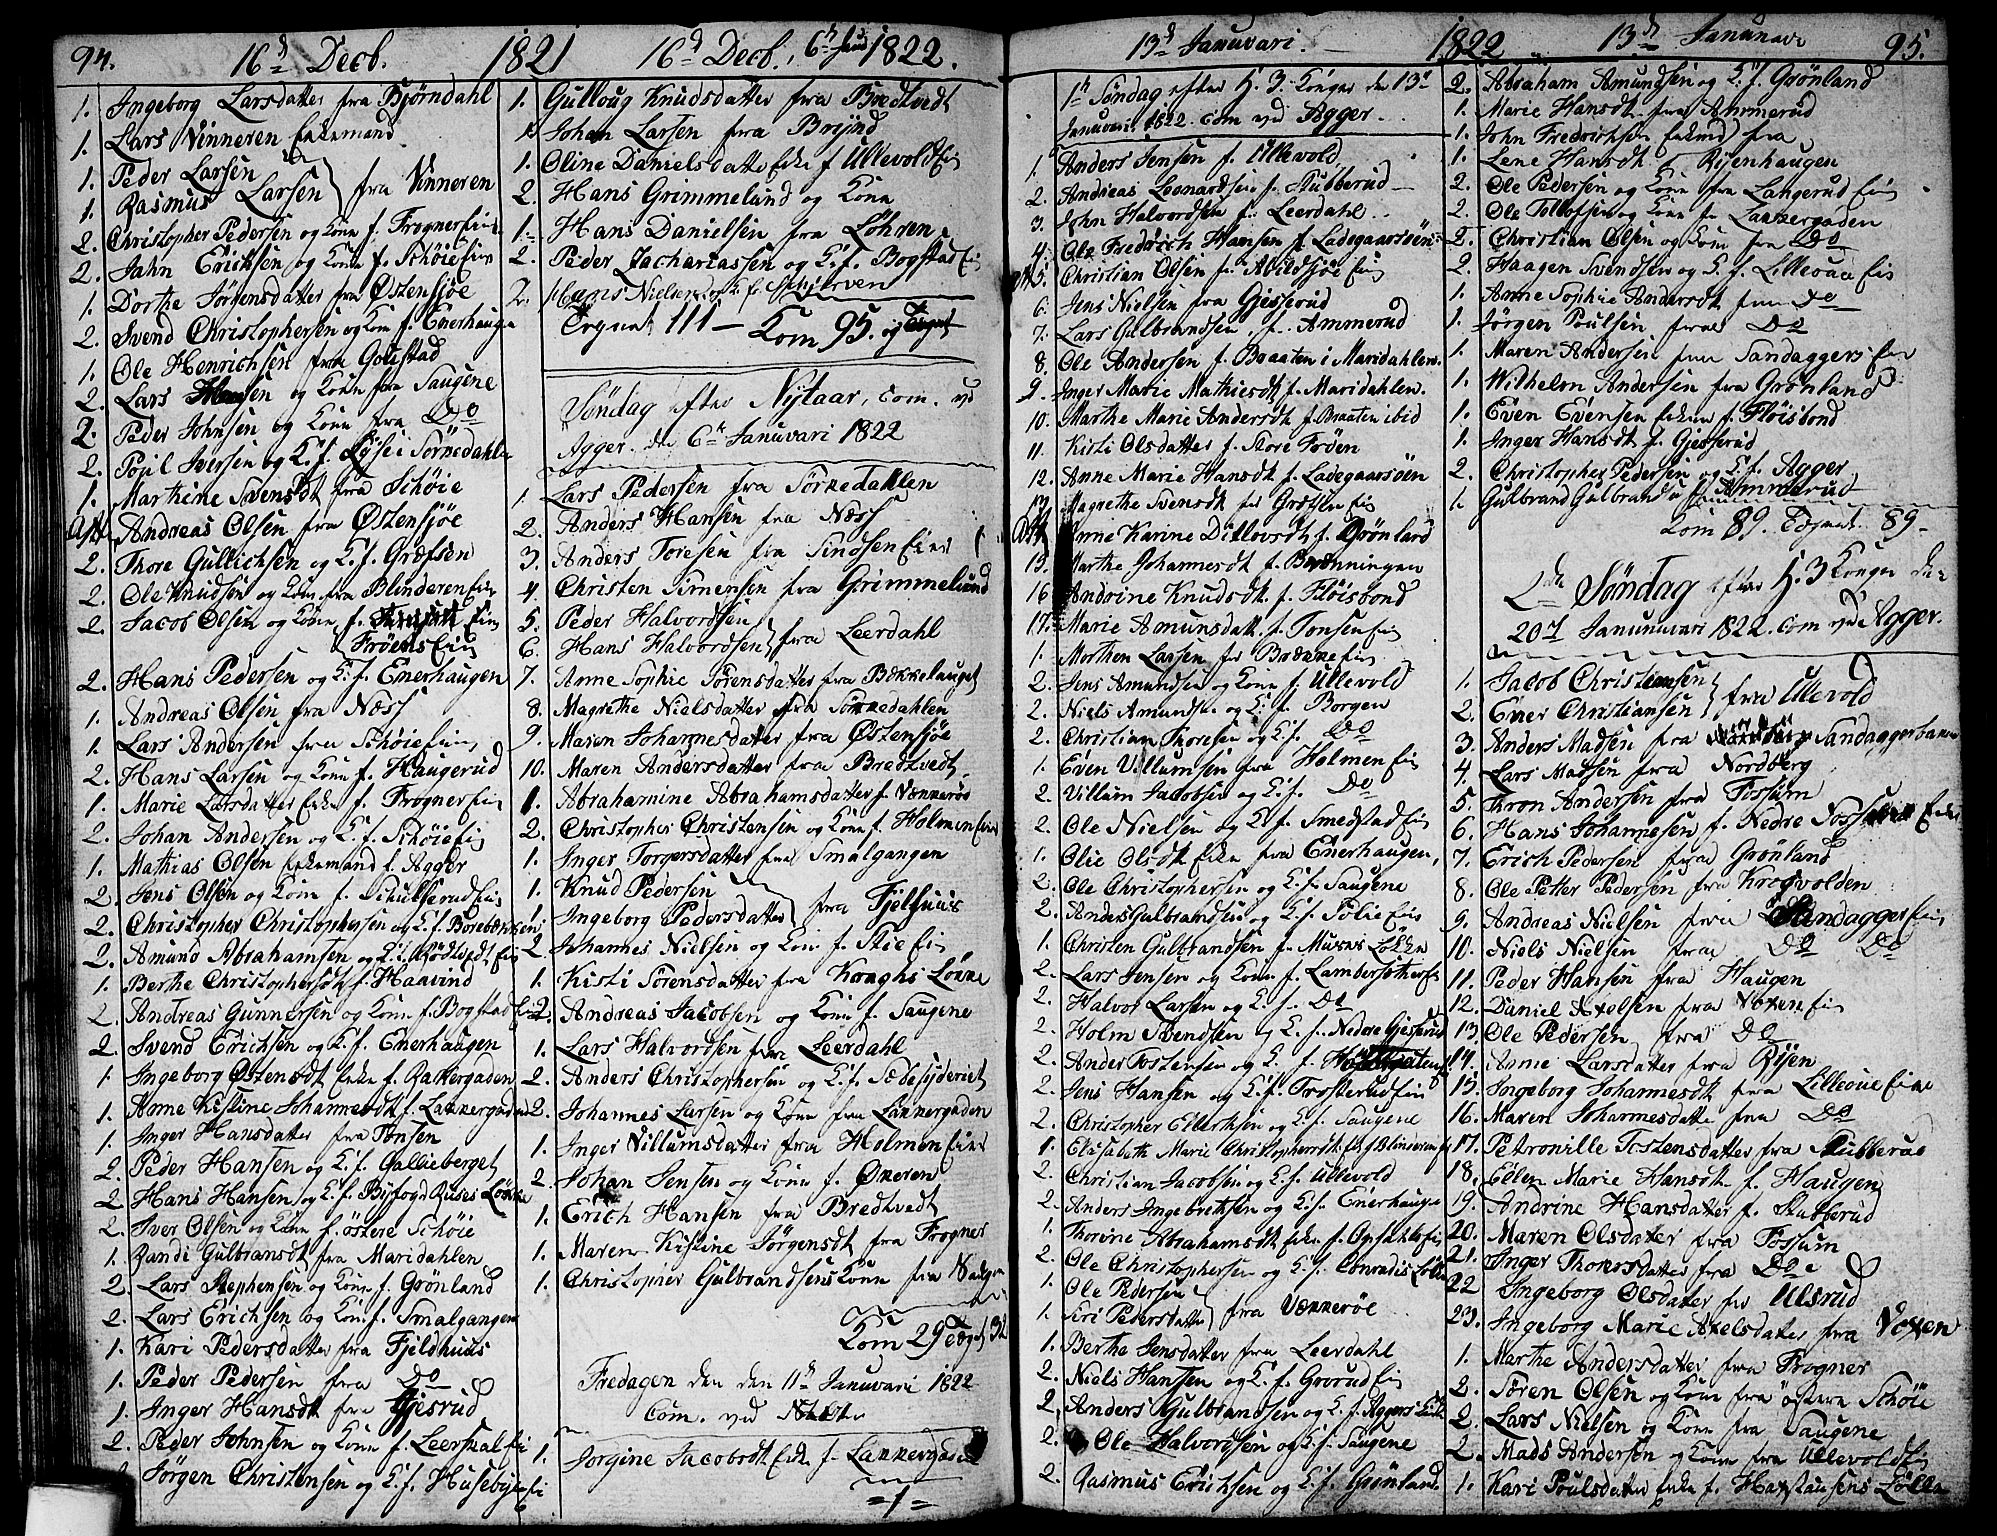 94. 16d Decb. 1821 16d Decb. 6h Jan 1822.
1. Ingeborg Larsdatter fra Bjørndahl
1. Lars Vinneren Enkemand
1. Peder Larsen
1. Rasmus Larsen } fra Vinneren
2. Christopher Pedersen og Kone f. Frogner Eie
2. Jahn Erichsen og Kone f. Schøie Eie
1. Dorthe Jørgensdatter fra Østensjøe
2. Svend Christophersen og Kone f. Enerhaugen
1. Ole Henrichsen fra Goustad
2. Lars Hansen og Kone fra Saugene
2. Peder Johnsen og Kone fra Do
2. Poul Iversen og K. f. Sørkedahlen
1. Marthine Svensdt fra Schøie
Andreas Olsen fra Østensjøe
2. Thore Gullichsen og K. f. Græfsen
2. Ole Knudsen og Kone fra Blinderen Eie
2. Jacob Olsen og Kone f.
Frøens Eie
2. Hans Pedersen og K. f. Enerhaugen
1. Andreas Olsen fra Næss
1. Lars Andersen fra Schøie Eie
2. Hans Larsen og Kone f. Haugerud
1. Marie Larsdatter Enke f. Frogner Eie
2. Johan Andersen og K. f. Schøie Eie
1. Mathias Olsen Enkemand f. Agger
2. Jens Olsen og Kone f. Schullerud Eie
2. Christopher Christophersen og K. f. Borebækken
2. Amund Abrahamsen og K. f. Rødtvedt Eie
1. Berthe Christophersdt f. Haavind
2. Andreas Gunnersen og Kone f. Bogstad Eie
2. Svend Erichsen og K. f. Enerhaugen
1. Ingeborg Østensdt Enke f. Rakkergaden
1. Anne Kistine Johannesdt f. Lakkergaden
1. Inger Hansdatter fra Tonsen
2. Peder Hansen og K. f. Gallieberget
2. Hans Hansen og K. f. Byfogd Ruses Løkke
2. Iver Olsen og Kone f. østere Schøie
1. Randi Gulbransdt fra Maridahlen
2. Lars Stephensen og Kone f. Grønland
2. Lars Erichsen og Kone f. Smalgangen
1. Kari Pedersdatter fra Fjeldhuus
1. Peder Pedersen fra Do
1. Inger Hansdt fra Gjesrud
2. Peder Johnsen og Kone f. Leerskal Eie
Jørgen Christensen og K. f. Husebye Eie
1. Gulloug Knudsdatter fra Bredtvedt
1. Johan Larsen fra Brynd
1. Oline Danielsdatter Enke f Ullevold Eie
2. Hans Grimmelund og Kone
1. Hans Danielsen fra Løhren
2. Peder Zachariassen og K. f. Bogstad Eie
2. Hans Nielsen og K. f. Schjerven
Tegnet 111 — Kom 95. og Tegnet
Søndag efter Nytaar, com. ved
Agger. de 6h Januvari 1822
1. Lars Pedersen fra Sørkedahlen
2. Anders Hansen fra Næss
3. Anders Toresen fra Sindsen Eie
4. Christen Simensen fra Grimmelund
5. Peder Halvordsen
6. Hans Halvordsen } fra Leerdahl
7. Anne Sophie Sørensdatter fra Bækkelauget
8. Magrethe Nielsdatter fra Sørkedahlen
9. Maren Johannesdatter fra Østensjøe
10. Maren Andersdatter fra Bredtvedt
1. Abrahamine Abrahamsdatter f. Vækkerøe
2. Christopher Christensen og Kone f. Holmen Eie
1. Inger Torgersdatter fra Smalgangen
1. Knud Pedersen
1. Ingeborg Pedersdatter } fra Fjelhuus
2. Johannes Nielsen og Kone f. Skie Eie
1. Kisti Sørensdatter fra Konghs Løkke
2. Andreas Jacobsen og Kone f. Saugene
1. Lars Halvordsen fra Leerdahl
2. Anders Christophersen og K. f. Sædesyderiet
2. Johannes Larsen og Kone fra Lakkergaden
1. Inger Villumsdatter fra Holmen Eie
2. Johan Jensen og Kone f. Økeren
1. Erich Hansen fra Bredtvedt
1. Maren Kistine Jørgensdt fra Frogner
1. Christopher Gulbrandsens Kone fra
Kom 29 Tegnet 32
Fredagen den den 11h Januvari 1822
Com. ved
1. Jorgine Jacobsdt Enke f. Lakkergaden
=1=
13d Januvari. 1822 13d Januvari 95.
1h Søndag efter H. 3. Konger de 13d
Januvari 1822. com ved Agger.
1. Anders Jensen f. Ullevold
2. Andreas Leonardsen f. Stubberud
3. John Halvordsen f. Leerdahl
4. Ole Fredrich Hansen f. Ladegaarsøen
5. Christian Olsen fra Abildsøe Eie
6. Jens Nielsen fra Gjesserud
7. Lars Gulbrandsen f. Ammerud
8. Ole Andersen f. Braaten i Maridahlen
9. Inger Marie Mathiesdt f. Maridahlen.
10. Marthe Marie Andersdt f. Braaten ibid
11. Kisti Olsdatter f. Store Frøen
12. Anne Marie Hansdt f. Ladegaarsøen
13. Magrethe Svensdt fra Eie
Anne Karine Ditlovsdt f. Grønland
15. Marthe Johannesdt f. Brænningen
16 Andrine Knudsdt f. Fløisbond
17. Marie Amunsdatt f. Tonsen Eie
1. Morthen Larsen fra Brække Eie
2. Jens Amundsen og Kone f. Ullevold
2. Niels Amundsen og K. f. Borgen
2. Christian Thoresen og K. f. Do
1. Even Villumsen fra Holmen Eie
2. Villum Jacobsen og K. f. Do
2. Ole Nielsen og K. f. Smedstad Eie
1. Olie Olsdt Enke fra Enerhaugen,
2. Ole Christophersen og K. f. Saugene
2. Anders Gulbrandsen og K. f. Tøiie Eie
1. Christen Gulbrandsen f. Løkke
2. Lars Jensen og Kone f. Lambersæther Eie
2. Halvor Larsen og K. f. Do
2. Holm Svendsen og K. f. Nedere Gjesserud
2. Anders Tostensen og K. f.
2. Jens Hansen og K. f. Trosterud Eie
2. Christopher Ellertsen og K. f. Saugene
1. Elisabeth Marie Christophersdt Enke f Blinderen Eie
2. Christian Jacobsen og K. f. Ullevold
2. Anders Ingebretsen og K. f. Enerhaugen
1. Thorine Abrahamsdt Enke f. Opsahl Eie
2. Ole Christophersen og K. f. Conradis Løkke
1. Ole Pedersen
1. Siri Pedersdatter } fra Vækkerøe
1. Berthe Jensdatter fra Leerdahl
2. Niels Hansen og K. f. Grorud Eie
2. Anders Gulbrandsen og K. f. Aggers Eie
2. Ole Halvordsen og K. f. Saugene
2. Rasmus Erichsen og K. f. Grønland.
2. Abraham Amundsen og K. f. Grønland
1. Marie Hansdt fra Ammerud
1. John Fredrichsen Enkmd fra
1. Lene Hansdt f. Risenhaugen
2. Ole Pedersen og Kone fra Langerud Eie
2. Ole Tollofsen og Kone f. Lakkergaden
2. Christian Olsen og Kone fra Do
2. Haagen Svendsen og K. f. Lilleoue Eie
1. Anne Sophie Andersdt fra Do
1. Jørgen Poulsen fra Do
1. Maren Andersen fra Sandaggers Eie
1. Wilhelm Andersen fra Grønland
1. Even Evensen Enkem f. Fløisbond
1. Inger Hansdt f. Gjesserud
2. Christopher Pedersen og K. f. Agger
1. Gulbrand Gulbrandsen fra Ammerud
Kom 89. Tegnet 89
2de Søndag efter H. 3 Konger den
20d Janunuvari 1822. com ved Agger.
1. Jacob Christiansen
2. Ener Christiansen } fra Ullevold
3. Anders Madsen fra Sandaggerbakken
4. Lars Madsen fra Nordberg
5. Thron Andersen fra Fossum
6. Hans Johannesen f. Nedre Eie
7. Erich Pedersen fra Grønland
8. Ole Petter Pedersen fra Krogvolden
9. Andreas Nielsen fra Sandagger Eie
10. Niels Nielsen fra Do Do
11. Peder Hansen fra Haugen
12. Daniel Axelsen fra Voxen Eie
13. Ole Pedersen fra Do
14. Anne Larsdatter fra Risen
15. Ingeborg Johannesdt fra Lilleoue Eie
16. Maren Johannesdatter fra Do
17. Petronille Tostensdatter fra Stubberud
18. Ellen Marie Hansdt f. Haugen
19. Andrine Hansdatter f. Stubberud
20. Maren Olsdatter fra Fossum
21. Inger Thorersdatter fra Do
22 Ingeborg Olsdatter fra Ulsrud
23. Ingeborg Marie Axelsdatter fra Voxen
1. Marthe Andersdatter fra Frogner
2. Søren Olsen og Kone fra østere Schøie
2. Lars Nielsen og Kone fra Saugene
2. Mads Andersen og Kone fra Ullevold Eie
1. Kari Poulsdatter Enke f. Løkke